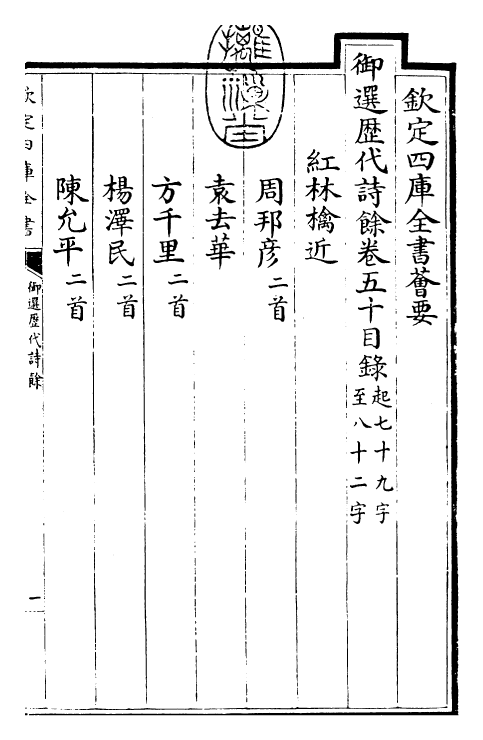 欽定四庫全書薈要
御選歴代詩餘卷五十目錄起七十九字
至八十二字
紅林檎近
周邦彦二首
袁去華
方千里二首
楊澤民二首
陳允平二首
欽定四庫全書
御選歴代詩餘
一